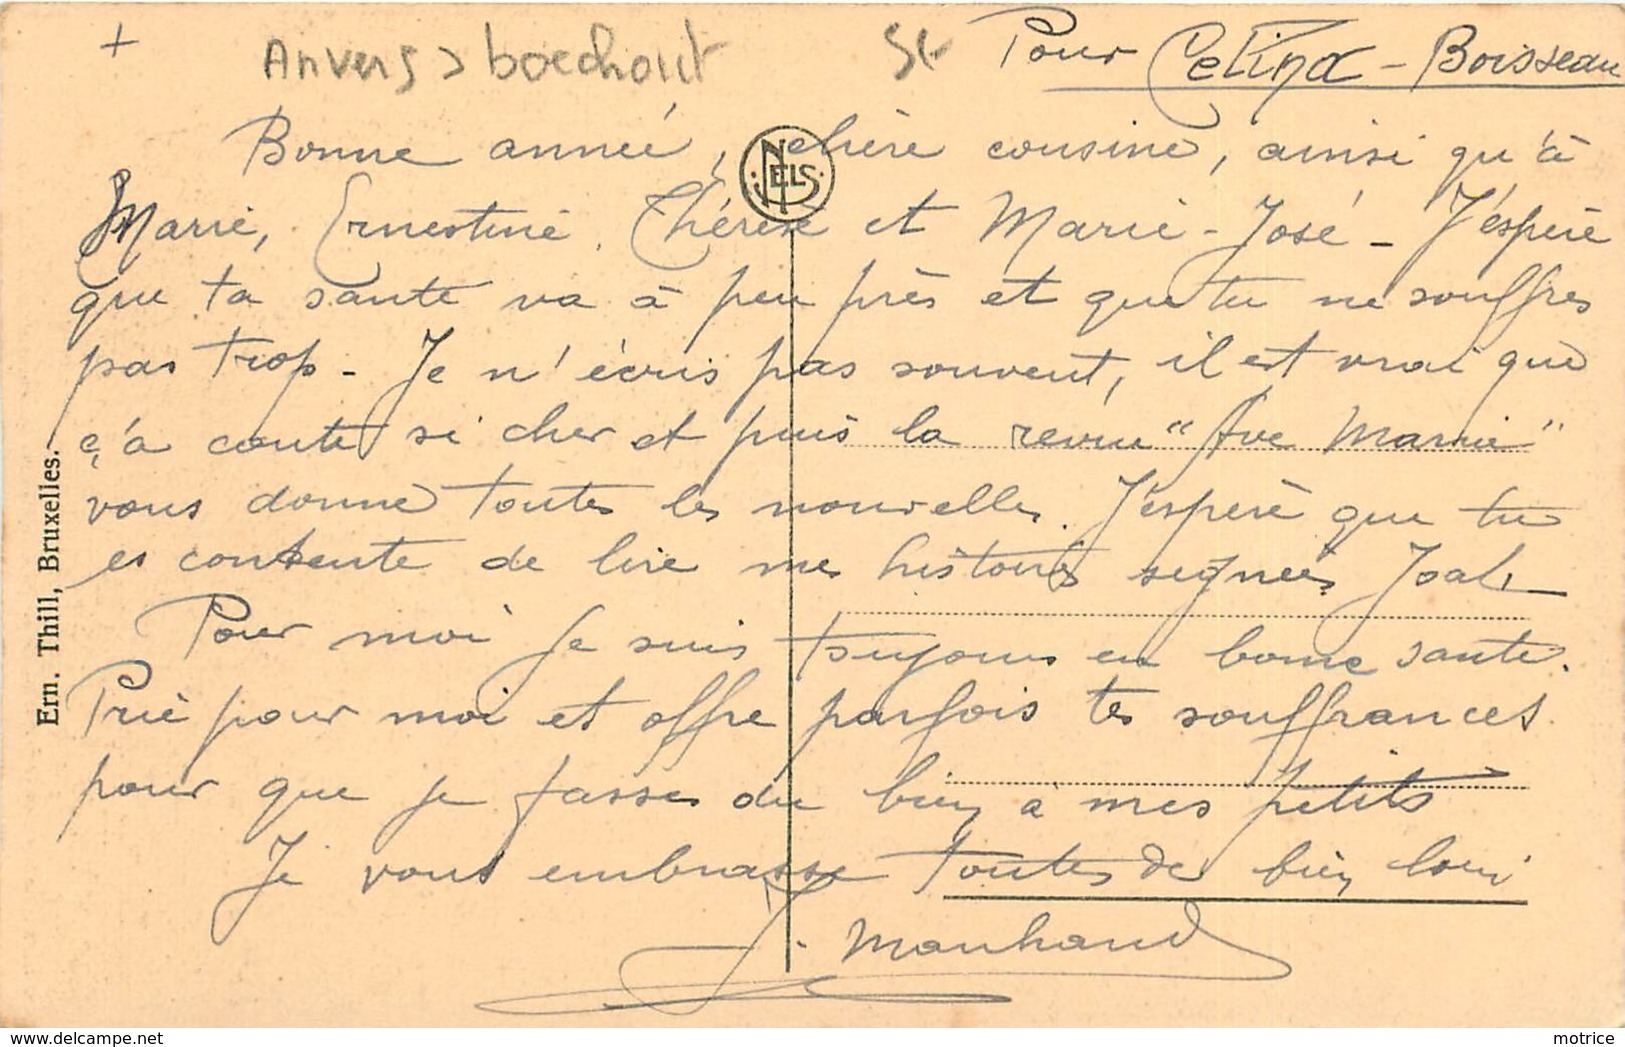 + Anvers > boechout St Pour Celina - Boisseau
Bonne année, chère cousine, ainsi qu'à
Marie, Ernestine, Thérèse et Marie-José - J'espère
que ta santé va à peu près et que tu ne souffres
pas trop - Je n'écris pas souvent, il est vrai que
ç'a coute si cher et puis la revue "Ave Maria"
vous donne toutes les nouvelles. J'espère que tu
es contente de lire mes histoires signées
Pour moi je suis toujours en bonne santé.
Prie pour moi et offre parfois tes souffrances
pour que je fasse du bien à mes petits
Je vous embrasse toutes de bien loin
J.
NELS
Ern. Thill, Bruxelles.
motrice